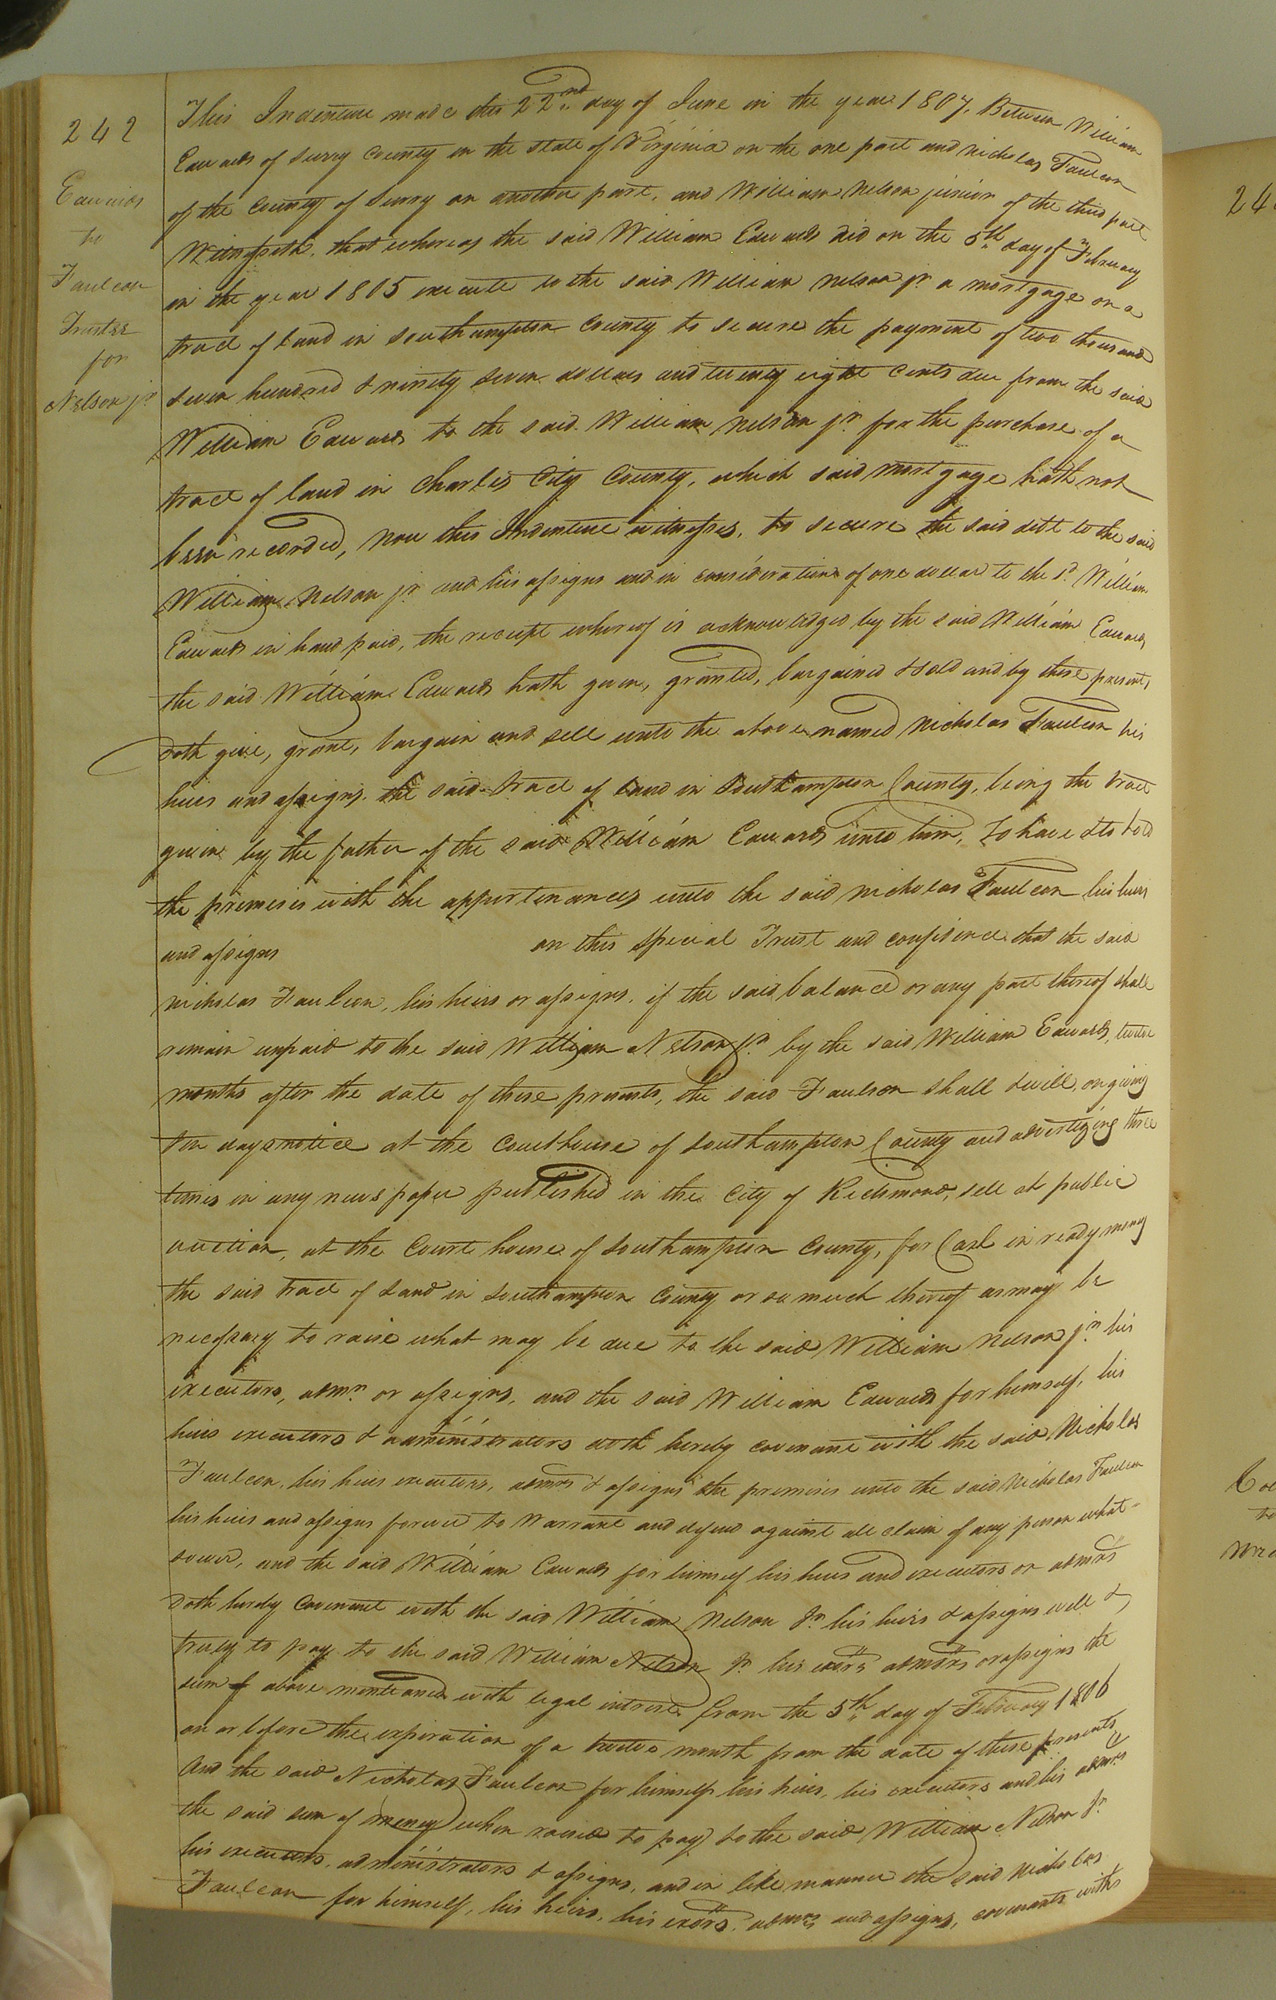 242
Edwards
to
Faulcon
Trustee
for
Nelson jr
This Indenture made this 22nd day of June in the year 1807, Between William
Edwards of Surry County in the state of Virginia on the one part and nicholas Faulcon
of the County of Surry on another part, and William Nelson junior of the third part
Witnesseth, that whereas the said William Edwards did on the 5th day of February
in the year 1805 execute to the said William nelson jr a mortgage on a
tract of Land in Southampton County to secure the payment of two thousand
seven hundred & ninety seven dollars and twenty eight cents due from the said
William Edwards to the said William Nelson jr for the purchase of a
tract of land in Charles City County, which said mortgage hath not
been recorded, now this Indenture witnesses, to secure the said debt to the said
William Nelson jr and his assigns and in consideration of one dollar to the sd William
Edwards in hand paid, the receipt whereof is acknowledged by the said William Edwards,
the said William Edwards hath given, granted, bargained & sold and by these presents,
doth give, grant, bargain and sell unto the above named Nicholas Faulcon his
heirs and assigns, the said tract of Land in Southampton County, being the tract
given by the father of the said William Edwards unto him, To have & to hold
the premises with the appurtinances unto the said nicholas Faulcon his heirs
and assigns on this special Trust and confidence that the said
nicholas Faulcon, his heirs or assigns, if the said balance or any part thereof shall
remain unpaid to the said William Nelson jr by the said William Edwards, twelve
months after the date of these presents, the said Faulcon shall & will, on giving
ten days notice at the Courthouse of Southampton County and advertizing three
times in any news paper published in the City of Richmond, sell at public
auction, at the Court house of Southampton County, for Cash in ready money
the said tract of Land in Southampton County or so much thereof as may be
necessary to raise what may be due to the said William Nelson jr his
executors, admrs or assigns, and the said William Edwards for himself, his
heirs executors & administrators doth hereby covenant with the said Nicholas
Faulcon, his heirs executors, admrs & assigns the premises unto the said Nicholas Faulcon
his heirs and assigns forever to Warrant and defend against all claim of any person what-
soever, and the said William Edwards for himself his heirs and executors or admrs
doth hereby Covenant with the said William Nelson Jr his heirs & assigns well &
truly to pay to the said William Nelson Jr his exors admors or assigns the
sum of above mentioned with legal interest from the 5th day of February 1806
on or before the expiration of a twelve month from the date of these presents
And the said Nicholas Faulcon for himself his heirs, his executors and his admrs
the said sum of money when raised to pay to the said William Nelson Jr
his executors, administrators & assigns, and in like manner the said Nicholas
Faulcon for himself, his heirs, his exors. admrs and assigns, covenants with